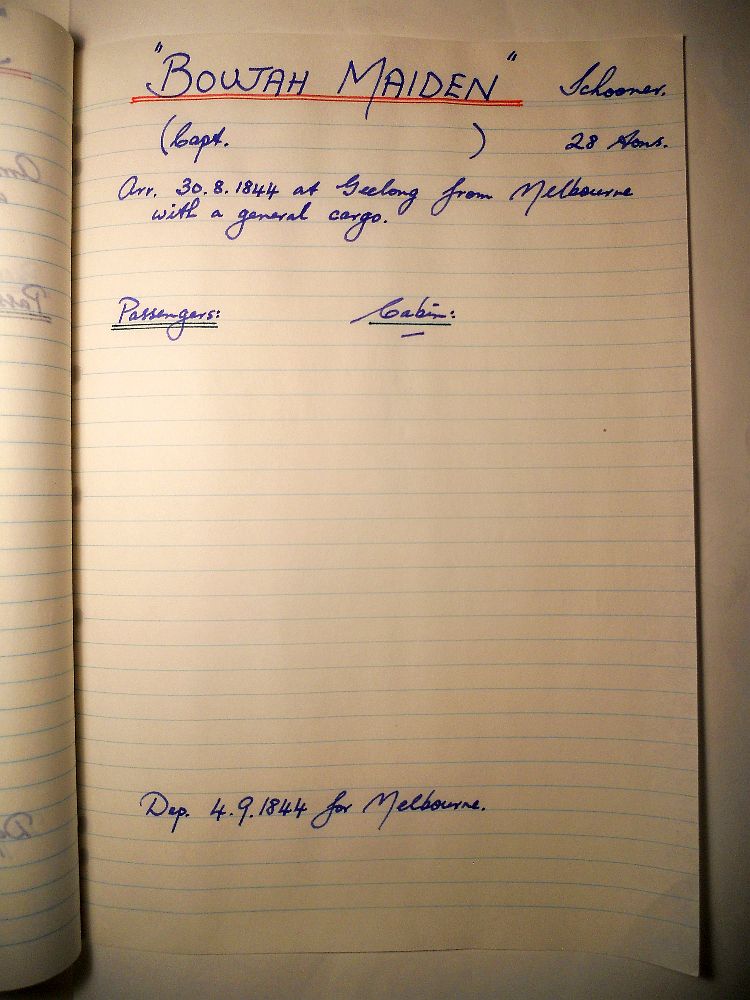 "BOUJAH MAIDEN" Schooner.
(Capt. ) 28 tons.
Arr. 30.8.1844 at Geelong from Melbourne
with a general cargo.
Passengers: Cabin:
Dep. 4.9.1844 for Melbourne.